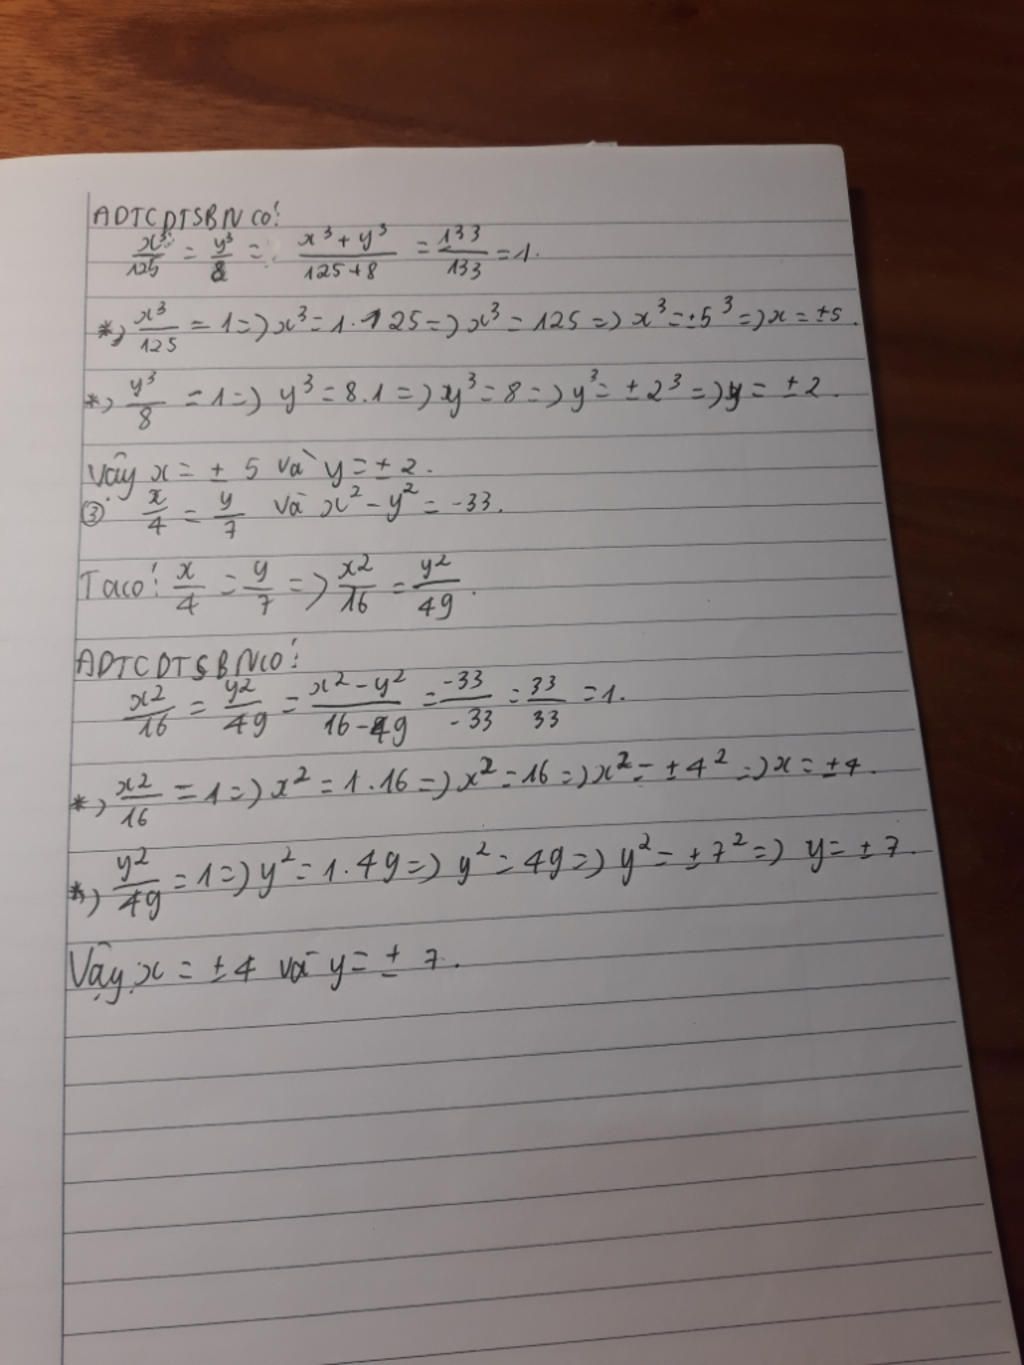 ADTCDTSBN có:
x³/125 = y³/8 = x³+y³/125+8 = 133/133 = 1.
*, x³/125 = 1 => x³ = 1.125 => x³ = 125 => x³ = ±5³ => x = ±5.
*, y³/8 = 1 => y³ = 8.1 => y³ = 8 => y³ = ±2³ => y = ±2.
Vây x = ± 5 và y = ± 2.
③ x/4 = y/7 và x² - y² = -33.
Ta có: x/4 = y/7 => x²/16 = y²/49.
ADTCDTSBN có:
x²/16 = y²/49 = x²-y²/16-49 = -33/-33 = 33/33 = 1.
*, x²/16 = 1 => x² = 1.16 => x² = 16 => x² = ±4² => x = ±4.
*, y²/49 = 1 => y² = 1.49 => y² = 49 => y² = ±7² => y = ±7.
Vậy x = ±4 và y = ± 7.